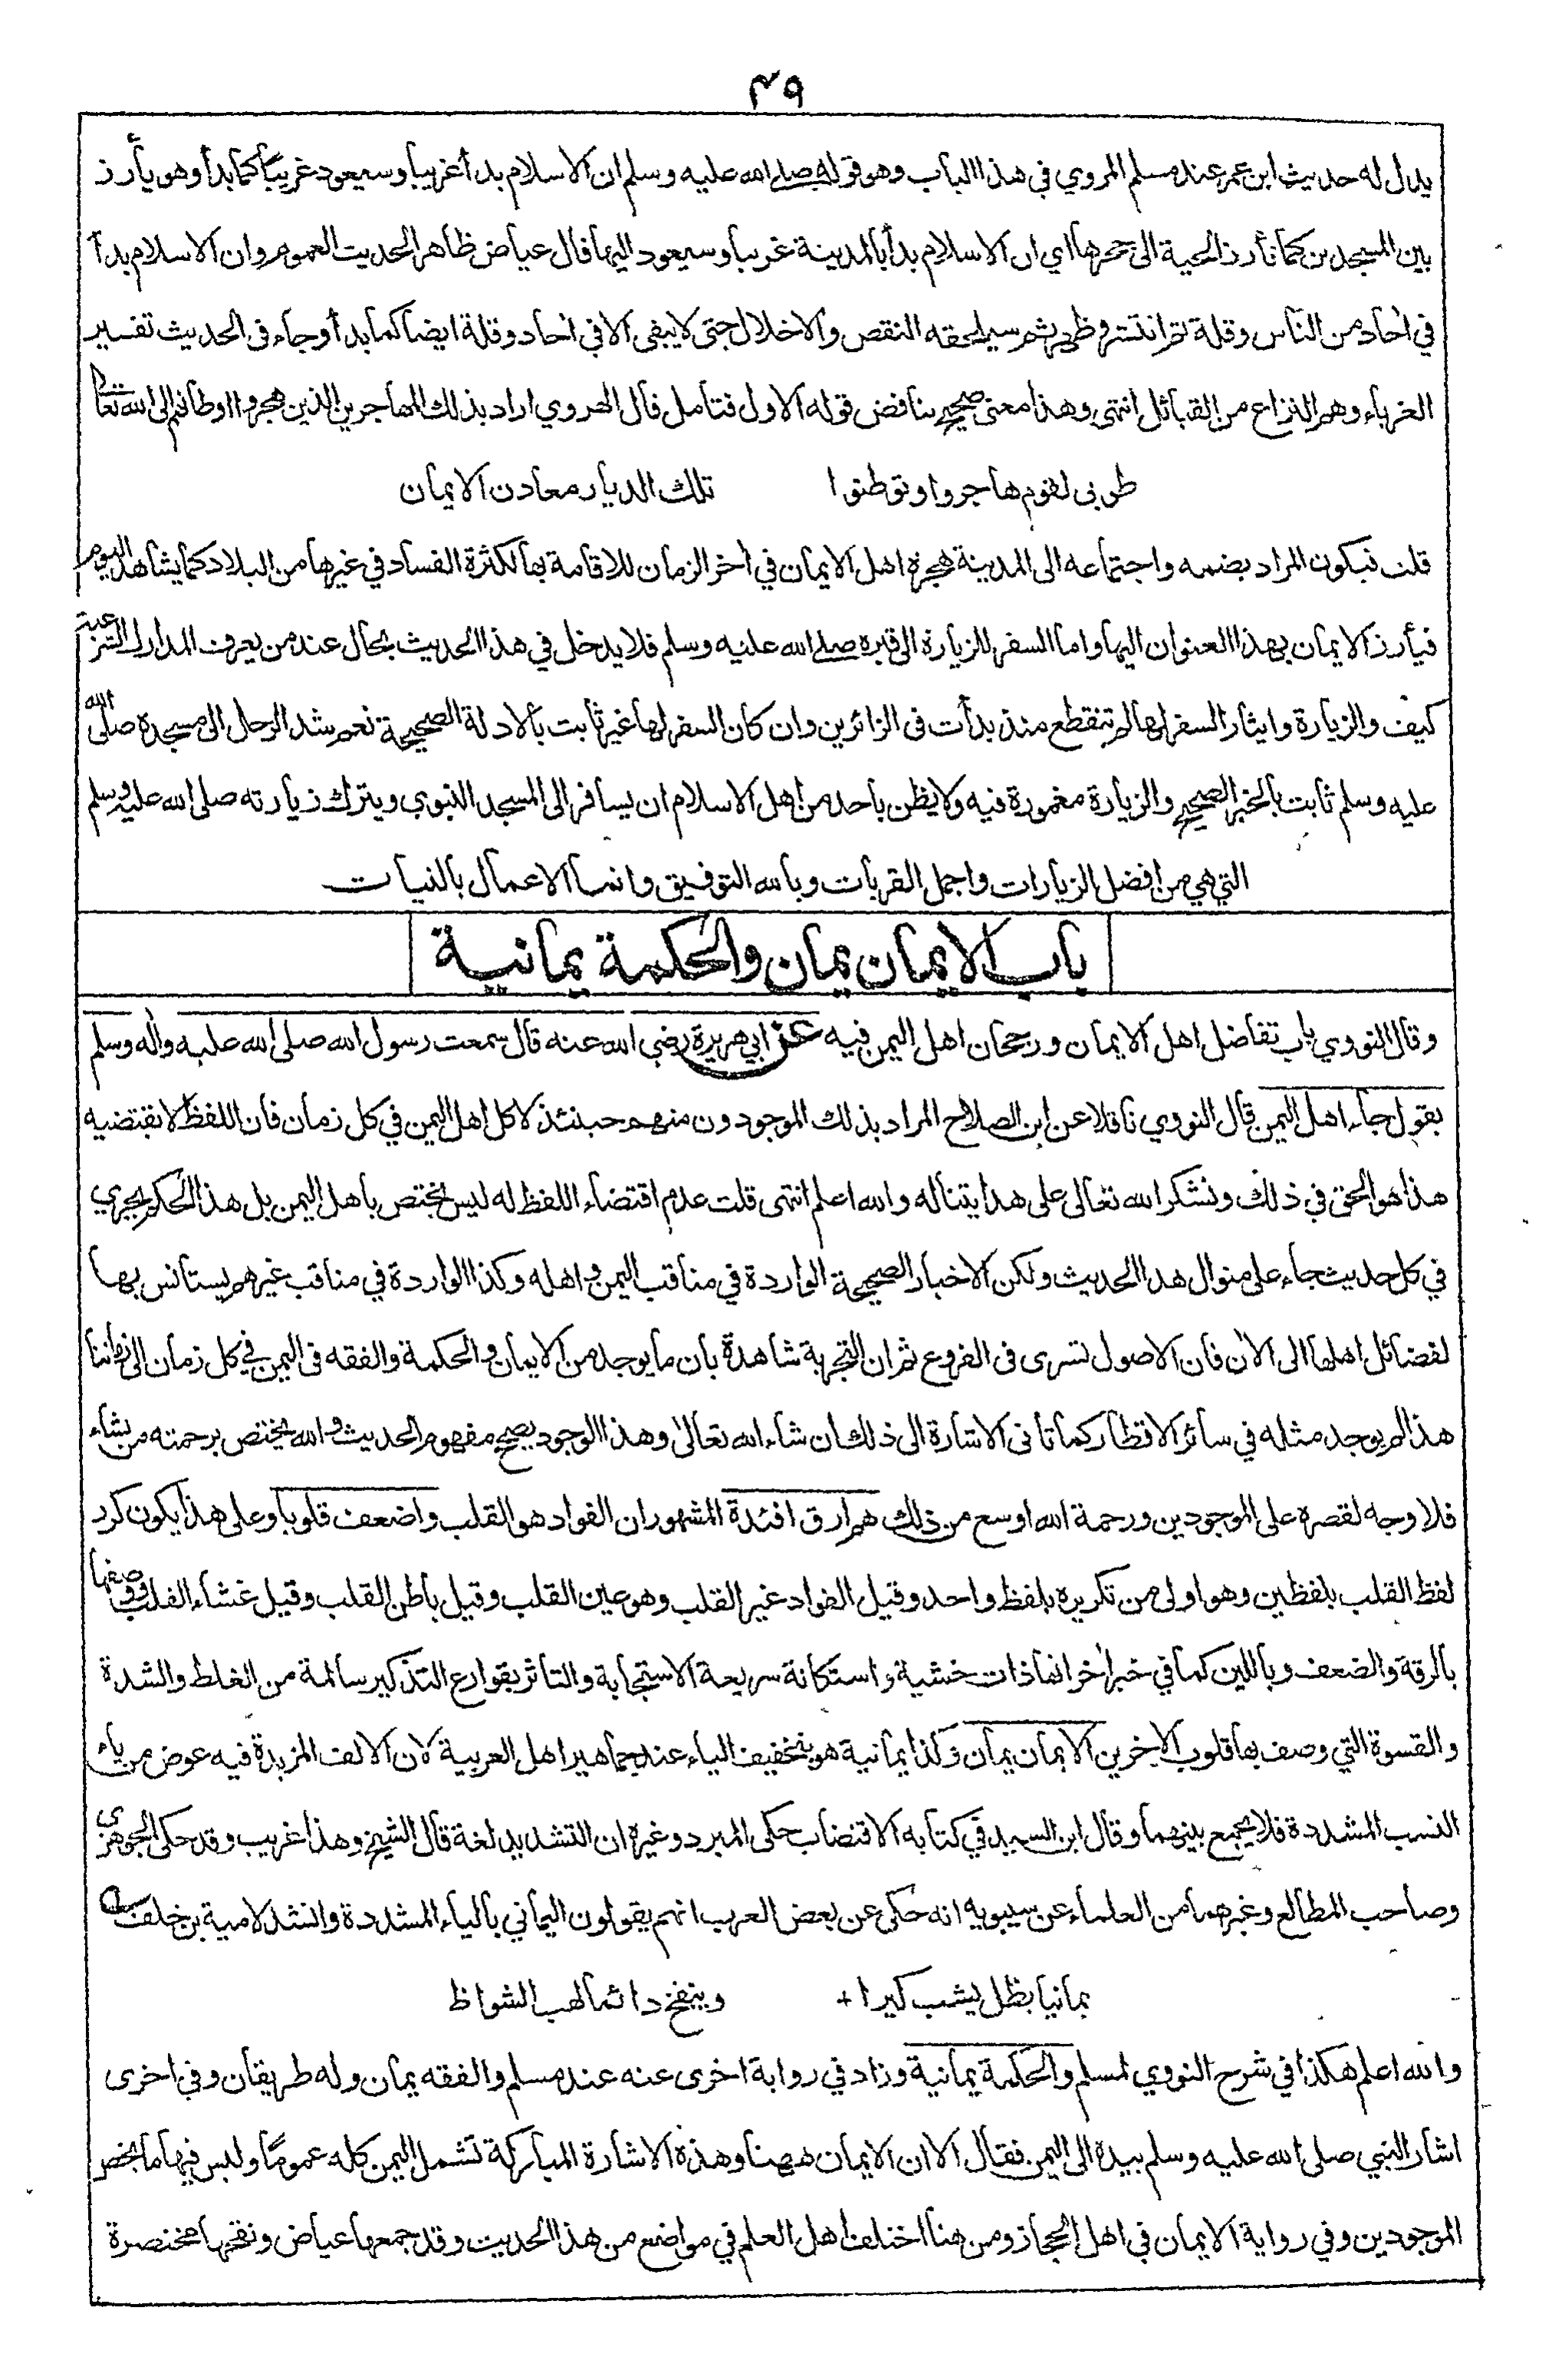 ٤٩
يدل له حديث ابن عمر عند مسلم المروي في هذا الباب وهو قوله صلى الله عليه وسلم ان الاسلام بدأ غريبا وسيعود غريبا كما بدأ وهو يأرز
بين المسجدين كما تأرز الحية الى جحرها اي ان الاسلام بدأ بالمدينة غريبا وسيعود اليها قال عياض ظاهر الحديث العموم وان الاسلام بدأ
في أحاد من الناس وقلة ثم انتشر وظهر ثم سيلحقه النقص والاخلال حتى لا يبقى الا في أحاد وقلة ايضا كما بدأ وجاء فى الحديث تفسير
الغرباء وهم النزاع من القبائل انتهى وهذا معنى صحيح يناقض قوله الاول فتامل قال الهروي اراد بذلك المهاجرين الذين هجروا اوطانهم الى الله تعالى
طوبى لقوم هاجروا وتوطنوا تلك الديار معادن الايمان
قلت فيكون المراد بضمه واجتماعه الى المدينة هجرة اهل الايمان في أخر الزمان للاقامة بها لكثرة الفساد في غيرها من البلاد كما يشاهد اليوم
فيأرز الايمان بهذا العنوان اليها واما السفر للزيارة الى قبره صلى الله عليه وسلم فلا يدخل في هذا الحديث بحال عند من يعرف المدارك الشرعية
كيف والزيارة وايثار السفر لها لم تنقطع منذ بدأت فى الزائرين وان كان السفر لها غير ثابت بالادلة الصحيحة نعم شد الرحل الى مسجده صلى الله
عليه وسلم ثابت بالخبر الصحيح والزيارة مغمورة فيه ولا يظن باحد من اهل الاسلام ان يسافر الى المسجد النبوي ويترك زيارته صلى الله عليه وسلم
التي هي من افضل الزيارات واجمل القربات وبالله التوفيق وانما الاعمال بالنيات
باب الايمان يمان والحكمة يمانية
وقال النووي باب تفاضل اهل الايمان ورجحان اهل اليمن فيه عن ابي هريرة رضي الله عنه قال سمعت رسول الله صلى الله عليه واله وسلم
يقول جاء اهل اليمن قال النووي ناقلا عن ابن الصلاح المراد بذلك الموجودون منهم حينئذ لا كل اهل اليمن في كل زمان فان اللفظ لا يقتضيه
هذا هو الحق في ذلك ونشكر الله تعالى على هدايتنا له والله اعلم انتهى قلت عدم اقتضاء اللفظ له ليس يختص باهل اليمن بل هذا الحكم يجري
في كل حديث جاء على منوال هذا الحديث ولكن الاخبار الصحيحة الواردة في مناقب اليمن واهله وكذا الواردة في مناقب غيرهم يستانس بها
لفضائل اهلها الى الأن فان الاصول تسرى فى الفروع ثم ان التجربة شاهدة بان ما يوجد من الايمان والحكمة والفقه فى اليمن في كل زمان الى زماننا
هذا لم يوجد مثله في سائر الاقطار كما تأتى الاشارة الى ذلك ان شاء الله تعالى وهذا الوجود يصحح مفهوم الحديث والله يختص برحمته من يشاء
فلا وجه لقصره على الموجودين ورحمة الله اوسع من ذلك هم ارق افئدة المشهور ان الفواد هو القلب واضعف قلوبا وعلى هذا يكون كرر
لفظ القلب بلفظين وهو اولى من تكريره بلفظ واحد وقيل الفواد غير القلب وهو عين القلب وقيل باطن القلب وقيل غشاء القلب ووصفها
بالرقة والضعف وباللين كما في خبر أخر انها ذات خشية واستكانة سريعة الاستجابة والتاثر بقوارع التذكير سالمة من الغلظ والشدة
والقسوة التي وصف بها قلوب الاخرين الايمان يمان وكذا يمانية هو بتخفيف الياء عند جماهير اهل العربية لان الالف المزيدة فيه عوض من ياء
النسب المشددة فلا يجمع بينهما وقال ابن السيد في كتابه الاقتضاب حكى المبرد وغيره ان التشديد لغة قال الشيخ وهذا غريب وقد حكى الجوهرى
وصاحب المطالع وغيرهما من العلماء عن سيبويه انه حكى عن بعض العرب انهم يقولون اليماني بالياء المشددة وانشد لامية بن خلف
يمانيا يظل يشب كيرا + وينفخ دائما لهب الشواظ
والله اعلم هكذا في شرح النووي لمسلم والحكمة يمانية وزاد في رواية اخرى عنه عند مسلم والفقه يمان وله طريقان وفي اخرى
اشار النبي صلى الله عليه وسلم بيده الى اليمن فقال الا ان الايمان ههنا وهذه الاشارة المباركة تشمل اليمن كله عموما وليس فيها ما يخص
الموجودين وفي رواية الايمان في اهل الحجاز ومن هنا اختلف اهل العلم في مواضع من هذا الحديث وقد جمعها عياض ونقحها مختصرة